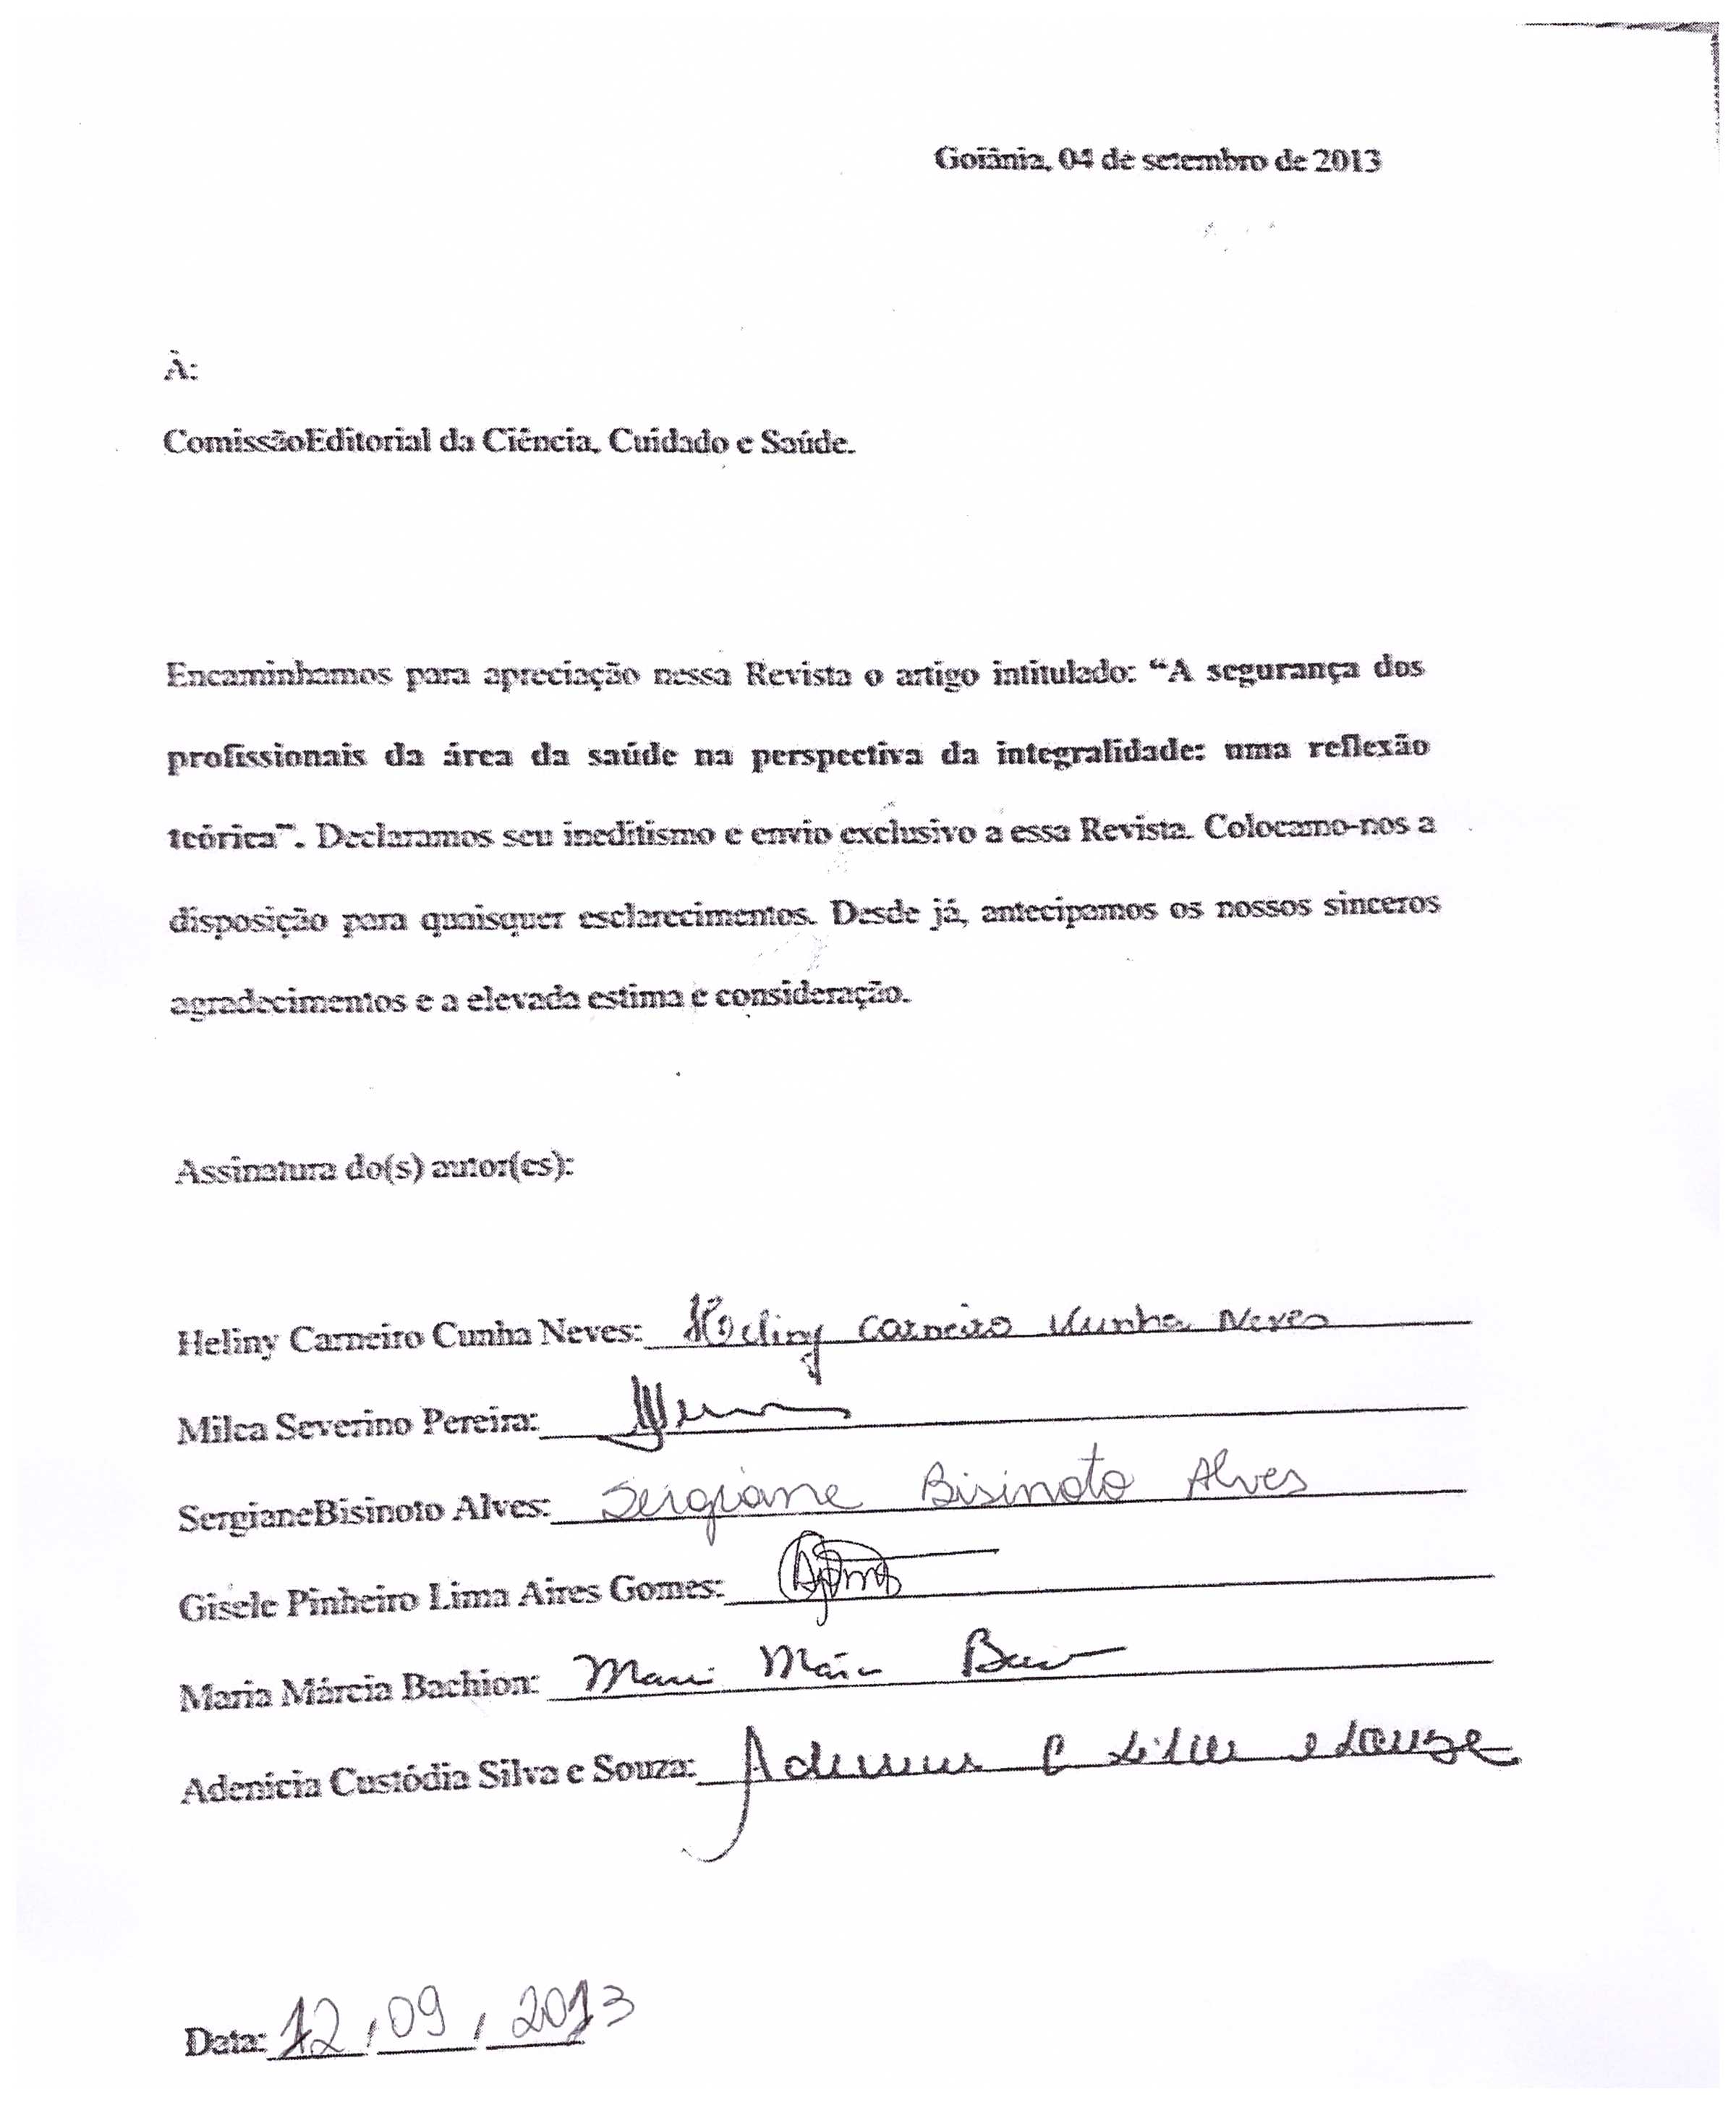 Goiânia, 04 de setembro de 2013
À:
ComissãoEditorial da Ciência, Cuidado e Saúde.
Encaminhamos para apreciação nessa Revista o artigo intitulado: “A segurança dos
profissionais da área da saúde na perspectiva da integralidade: uma reflexão
teórica”. Declaramos seu ineditismo e envio exclusivo a essa Revista. Colocamo-nos a
disposição para quaisquer esclarecimentos. Desde já, antecipamos os nossos sinceros
agradecimentos e a elevada estima e consideração.
Assinatura do(s) autor(es):
Heliny Carneiro Cunha Neves: Heliny Carneiro Cunha Neves
Milca Severino Pereira:
SergianeBisinoto Alves: Sergiane Bisinoto Alves
Gisele Pinheiro Lima Aires Gomes:
Maria Márcia Bachion:
Adenícia Custódia Silva e Souza: C Silva e Souza
Data: 12/09/2013